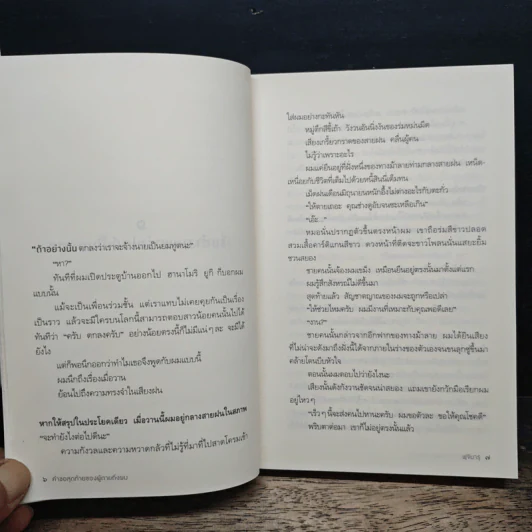 "ถ้าอย่างนั้น ตกลงว่าเราจะจ้างนายเป็นยมทูตนะ"
"หา?"
ทันทีที่ผมเปิดประตูบ้านออกไป ฮานาโมริ ยูกิ ก็บอกผม
แบบนั้น
แม้จะเป็นเพื่อนร่วมชั้น แต่เราแทบไม่เคยคุยกันเป็นเรื่อง
เป็นราว แล้วจะมีใครบนโลกนี้สามารถตอบสาวน้อยคนนั้นไปได้
ทันทีว่า "ครับ ตกลงครับ" อย่างน้อยตรงนี้ก็ไม่มีแน่ๆ ละ จะมีได้
ยังไง
แต่ก็พอนึกออกว่าทำไมเธอจึงพูดกับผมแบบนี้
ผมนึกถึงเรื่องเมื่อวาน
ย้อนไปถึงความทรงจำในเสียงฝน
หากให้สรุปในประโยคเดียว เมื่อวานนี้ผมอยู่กลางสายฝนในสภาพ
"จะทำยังไงต่อไปดีนะ"
ความกังวลและความหวาดกลัวที่ไม่รู้ที่มาที่ไปสาดโครมเข้า
๖ คำขอสุดท้ายของผู้ตายถึงผม
ใส่ผมอย่างกะทันหัน
หมู่ตึกสีขี้เถ้า
เสียงเกรี้ยวกราดของสายฝน คลื่นผู้คน
ไม่รู้ว่าเพราะอะไร
ผมแค่ยืนอยู่ที่ฝั่งหนึ่งของทางม้าลายท่ามกลางสายฝน เหนิด-
เหนื่อยกับชีวิตที่เต็มไปด้วยหนี้สินนี่เต็มทน
"ให้ตายเถอะ คุณช่างดูอับจนซะเหลือเกิน"
"เอ๊ะ..."
หมอนั่นปรากฏตัวขึ้นตรงหน้าผม เขาถือร่มสีขาวปลอด
สวมเสื้อคาร์ดิแกนสีขาว
ชวนสยอง
ชายคนนั้นจ้องผมเขม็ง เหมือนยืนอยู่ตรงนั้นมาตั้งแต่แรก
ผมรู้สึกสังหรณ์ไม่ดีขึ้นมา
สุดท้ายแล้ว สัญชาตญาณของผมจะถูกหรือเปล่า
"ให้ช่วยไหมครับ ผมมีงานที่เหมาะกับคุณพอดีเลย"
"งาน?"
ชายคนนั้นกล่าวจากอีกฟากของทางม้าลาย ผมได้ยินเสียง
ที่ไม่น่าจะดังมาถึงฝั่งนี้ได้จากภายในร่างของตัวเองจนขนลุกซู่ขึ้นมา
คล้ายโดนบีบหัวใจ
ตอนนั้นผมตอบไปว่ายังไงนะ
เสียงนั้นดังกังวานชัดจนน่าสยอง แถมเขายังกวักมือเรียกผม
อยู่ไหวๆ
พริบตาต่อมา เขาก็ไม่อยู่ตรงนั้นแล้ว
ฟุจิมารุ ๗